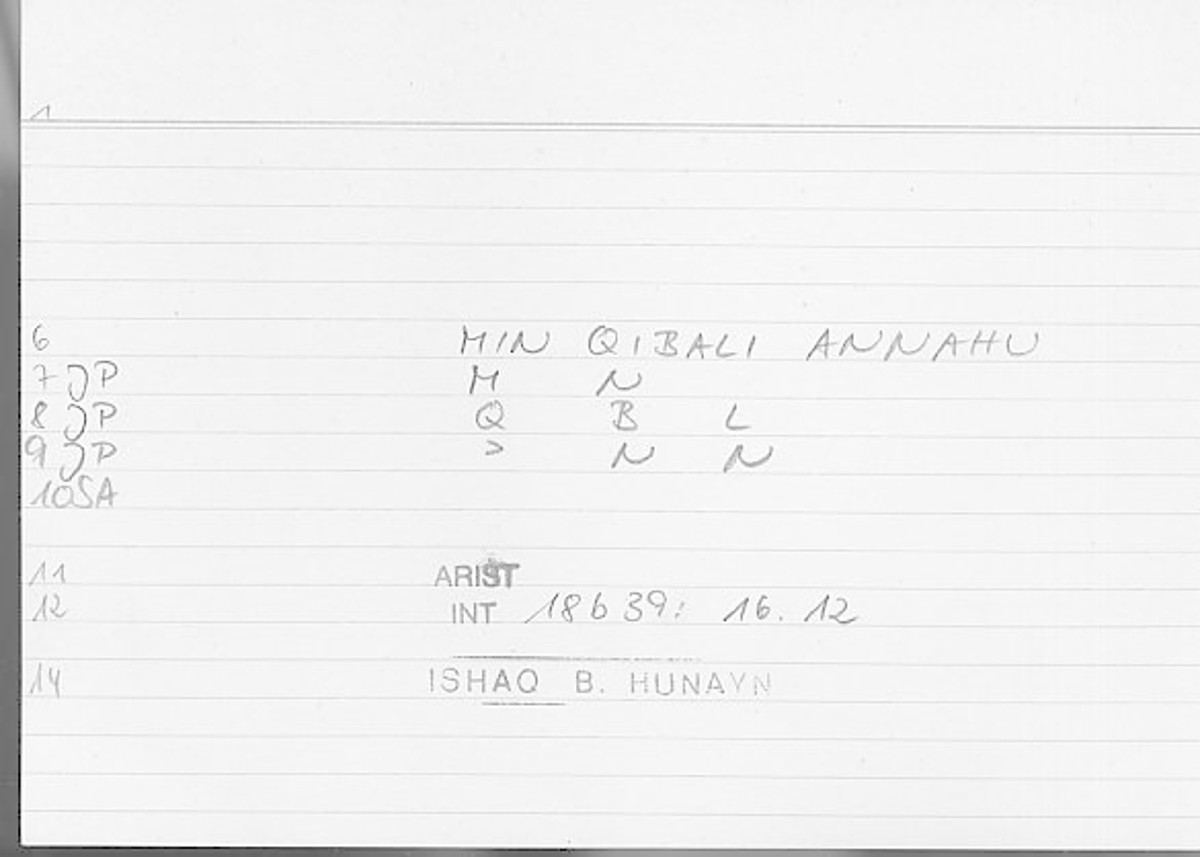 1
6 MIN QIBALI ANNAHU
7 JP M N
8 JP Q B L
9 JP > N N
10 SA
11 ARIST
12 INT 18639: 16.12
14 ISHAQ B. HUNAYN